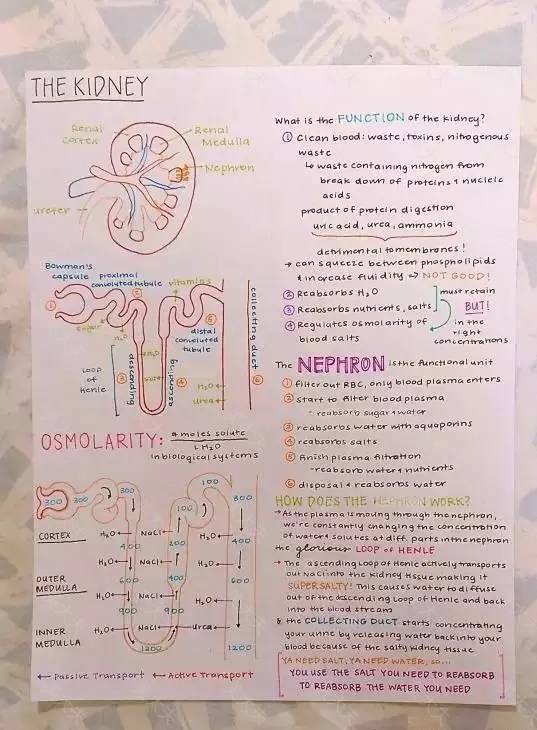 THE KIDNEY
Renal
Cortex
Renal
Medulla
Nephron
ureter
Bowman's
capsule
proximal
convoluted tubule
vitamins
sugar
H₂O
distal
convoluted
tubule
collecting duct
Loop
of
Henle
descending
ascending
H₂O
salt
H₂O
urea
① ② ③ ④ ⑤ ⑥
OSMOLARITY: # moles solute
LH₂O
in biological systems
300 300 300 100 300
100
CORTEX H₂O NaCl H₂O
400 200 400
H₂O NaCl H₂O
OUTER
MEDULLA
600 400 600
H₂O NaCl H₂O
900 900
INNER
MEDULLA
H₂O NaCl Urea
1200 1200
← Passive Transport ← Active Transport
What is the FUNCTION of the kidney?
① Clean blood: waste, toxins, nitrogenous
waste
↳ waste containing nitrogen from
break down of proteins & nucleic
acids
product of protein digestion
uric acid, urea, ammonia
detrimental to membranes!
→ can squeeze between phospholipids
& increase fluidity → NOT GOOD!
② Reabsorbs H₂O
③ Reabsorbs nutrients, salts
must retain
BUT!
④ Regulates osmolarity of
blood salts
in the
right
concentrations
The NEPHRON is the functional unit
① filter out RBC, only blood plasma enters
② start to filter blood plasma
- reabsorb sugar & water
③ reabsorbs water with aquaporins
④ reabsorbs salts
⑤ finish plasma filtration
- reabsorb water & nutrients
⑥ disposal & reabsorbs water
HOW DOES THE NEPHRON WORK?
→ As the plasma is moving through the nephron,
we're constantly changing the concentration
of water & solutes at diff. parts in the nephron
the glorious LOOP of HENLE
→ The ascending loop of Henle actively transports
out NaCl into the kidney tissue making it
SUPER SALTY! This causes water to diffuse
out of the descending Loop of Henle and back
into the blood stream
& the COLLECTING DUCT starts concentrating
your urine by releasing water back into your
blood because of the salty kidney tissue
YA NEED SALT, YA NEED WATER, so...
YOU USE THE SALT YOU NEED TO REABSORB
TO REABSORB THE WATER YOU NEED